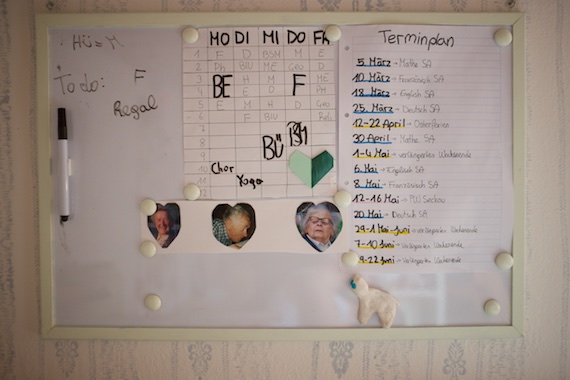 HÜ=M
To do: F
Regal
MO DI MI DO FR
1 F D BSM M E
2 Ph BIU ME GEO D
3 M F HM
4 E D PH
5 E M H D GEO
6 F BIU Reli
7
8
9
10
12
BE
F
BÜ
BSM
Chor
Yoga
Terminplan
5. März → Mathe SA
10. März → Französisch SA
18. März → English SA
25. März → Deutsch SA
12-22 April → Osterferien
30 April → Mathe SA
1-4 Mai → verlängertes Wochenende
6. Mai → Englisch SA
8. Mai → Französisch SA
12-16 Mai → PW Seckau
20 Mai → Deutsch SA
29-1 Mai-Juni → verlängertes Wochenende
7-10 Juni → verlängertes Wochenende
19-22 Juni → verlängertes Wochenende